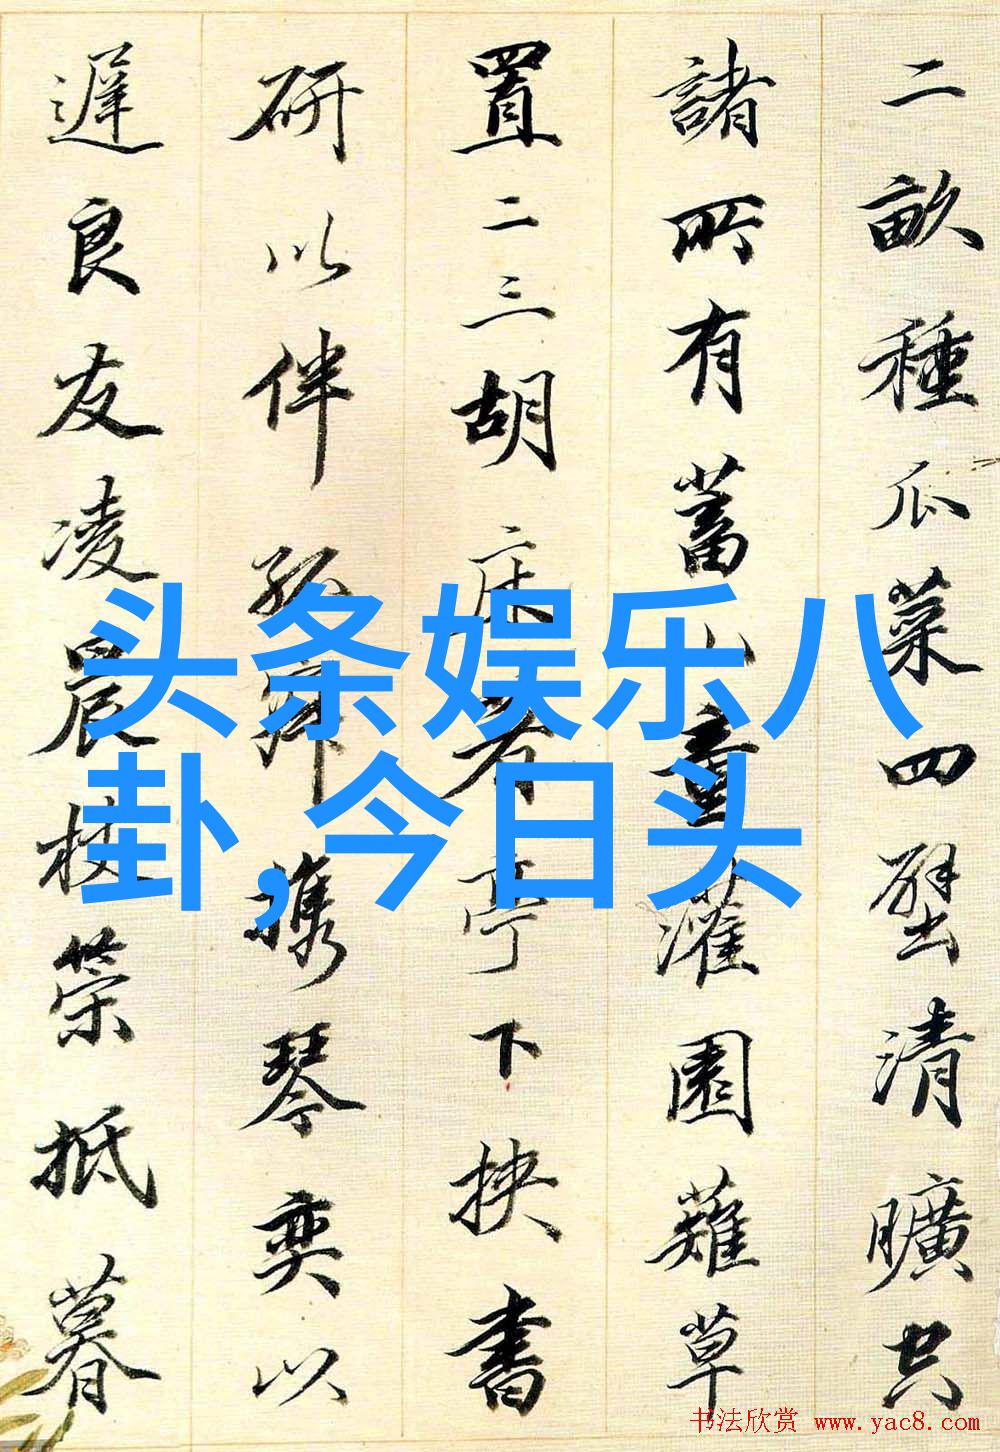 二畝種瓜菜四壁清曠空
諸所有蓄山童灌園薙草
置二三胡床著亭下挾書
研以伴孤寂攜琴奕以
遲良友凌晨杖策抵暮
头条娱乐八
卦,今日头
书法欣赏 www.yac8.com